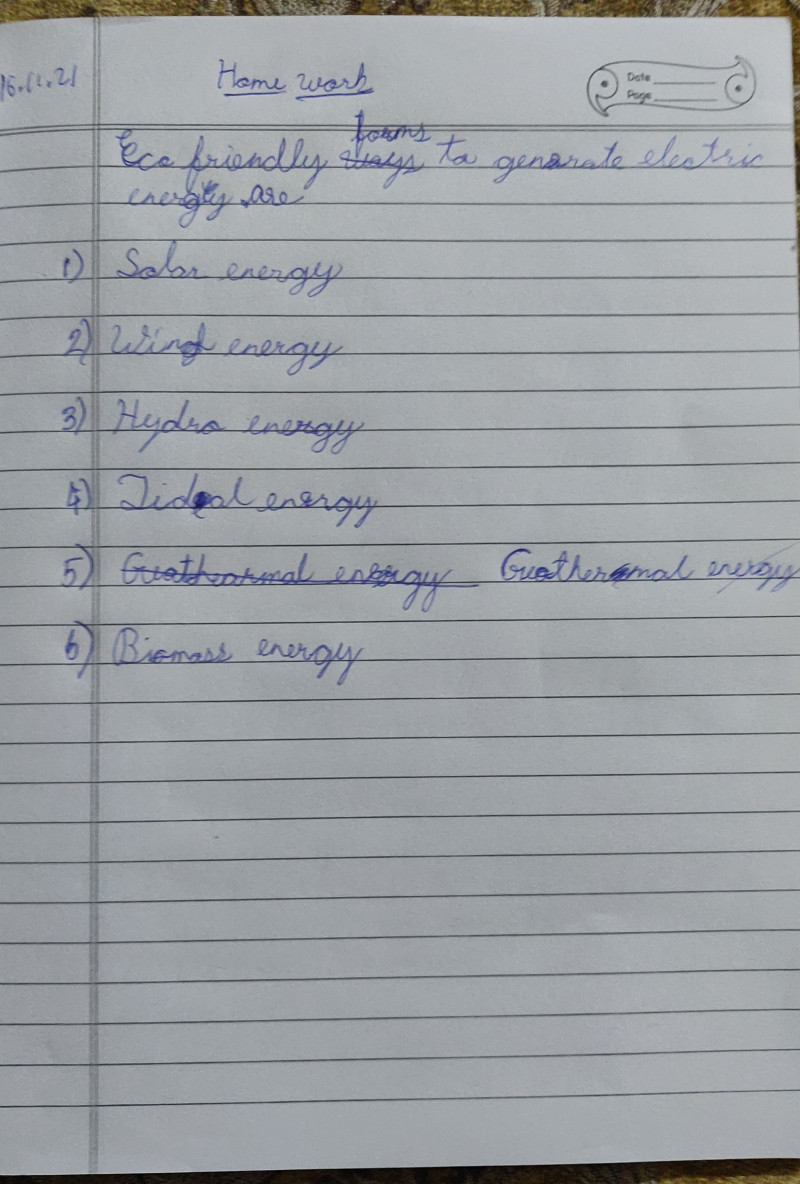 16.11.21
Home work
Date
Page
forms
Eco friendly ways to generate electric
energy are
1) Solar energy
2) Wind energy
3) Hydro energy
4) Tidal energy
5) Guothearmal energy Guothermal energy
6) Biomass energy